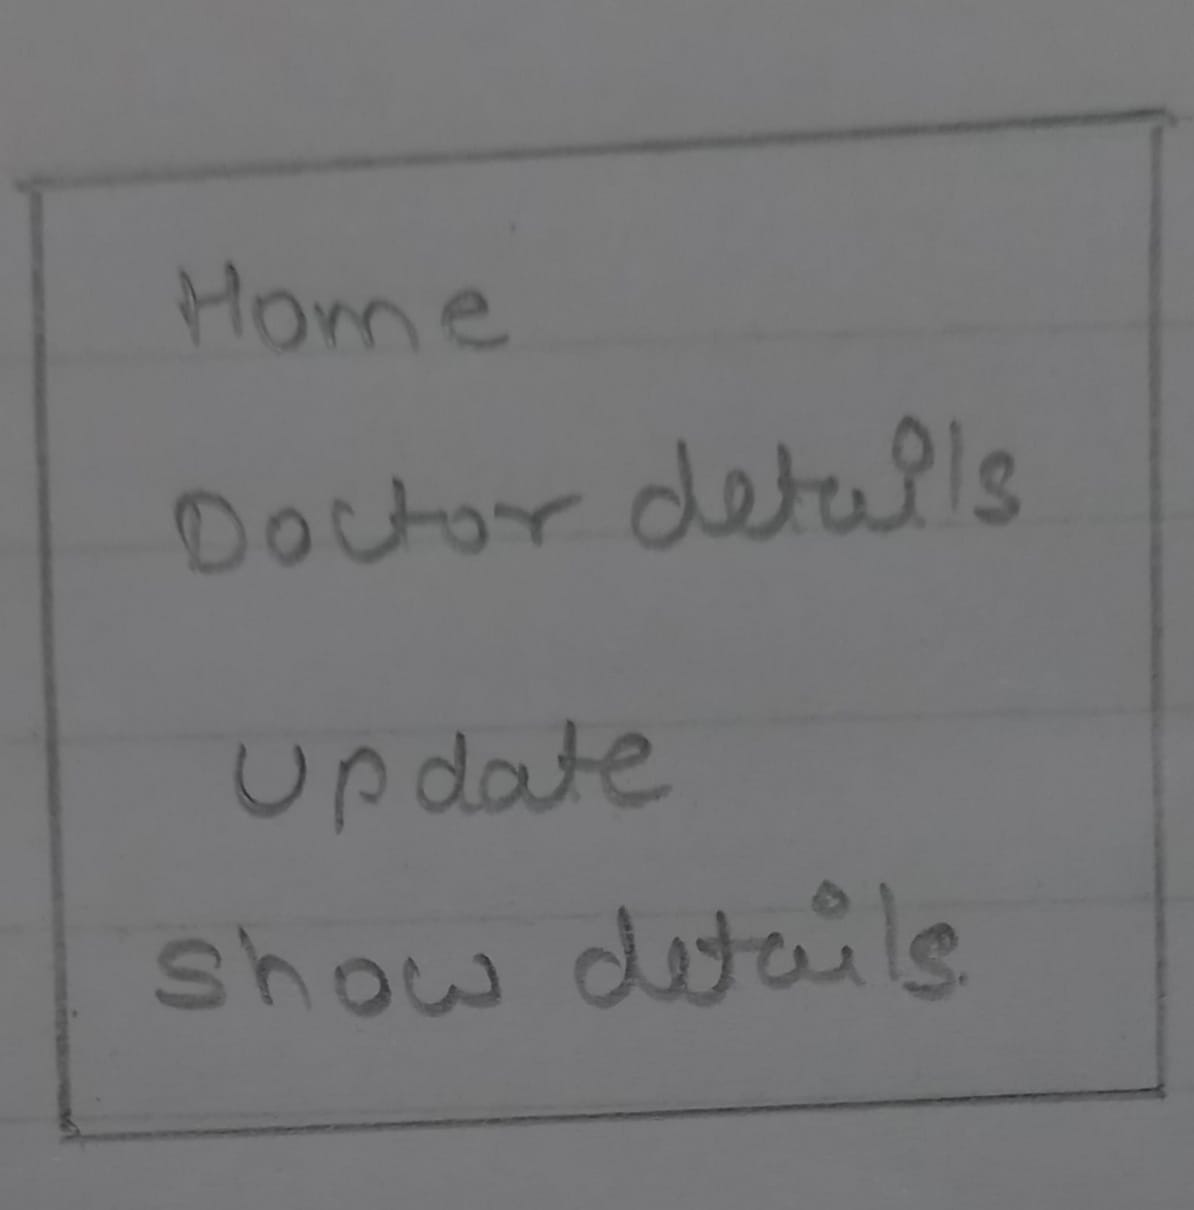 Home
Doctor details
Update
Show details